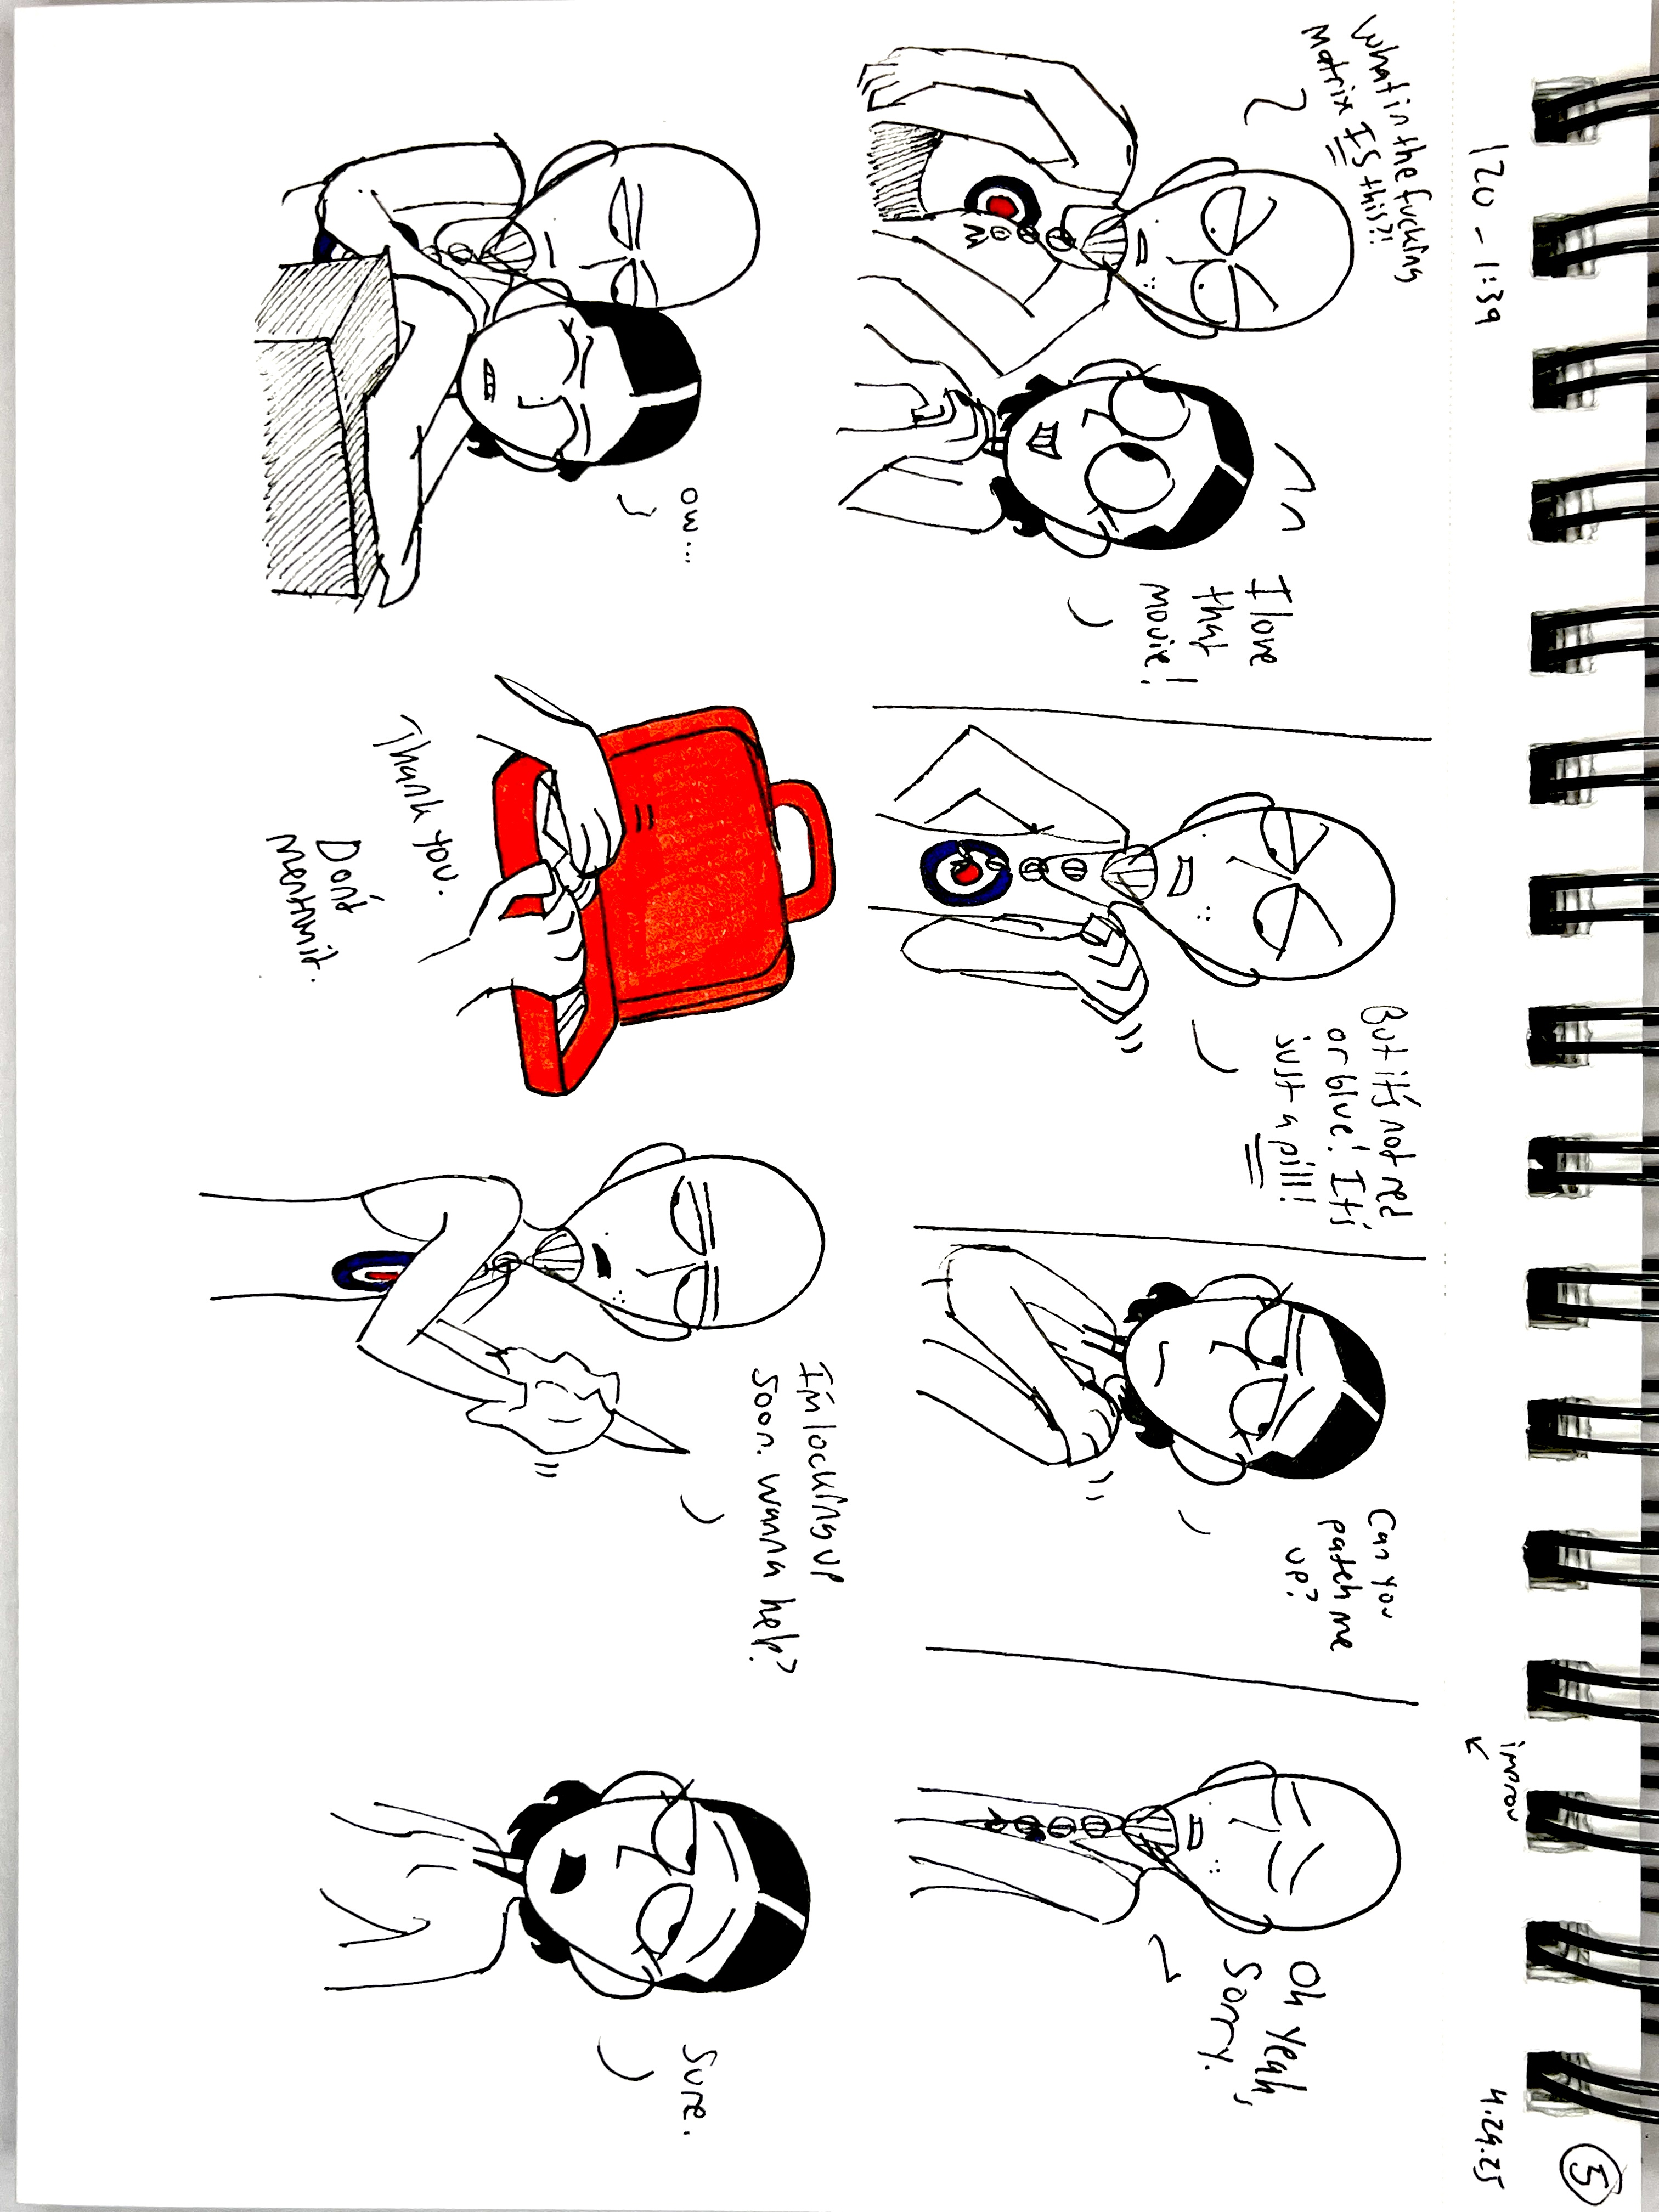 5
120 - 1:39
improv
4.29.25
What in the fucking
Matrix IS this?!
I love
that
movie!
But it's not red
or blue! It's
just a pill!
Can you
patch me
up?
Oh yeah,
sorry.
ow...
Thank you.
Don't
mention it.
I'm locking up
soon. wanna help?
Sure.